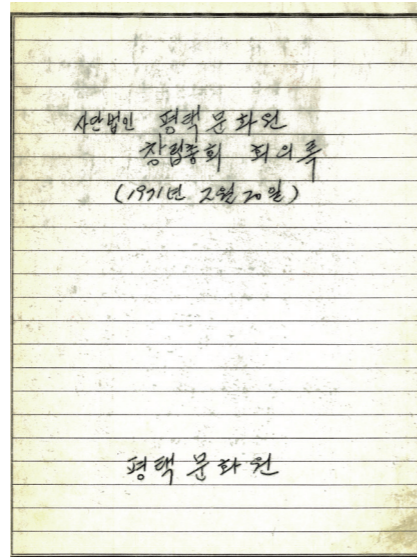 사단법인 평택문화원
창립총회 회의록
(1971년 2월 20일)
평택문화원